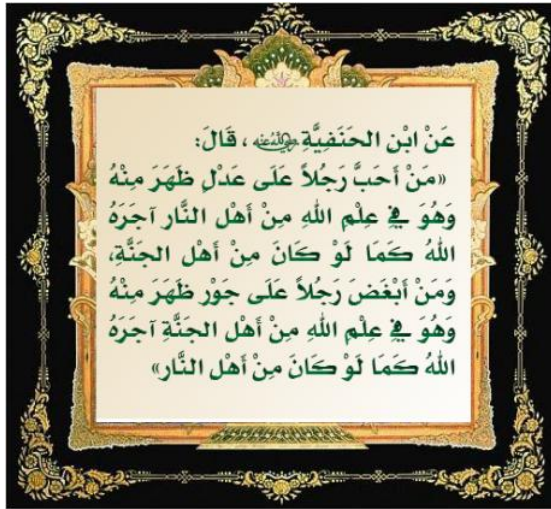 عَنْ ابْن الحَنَفِيَّةِ رضي الله عنه ، قَالَ:
«مَنْ أَحَبَّ رَجُلاً عَلَى عَدْلٍ ظَهَرَ مِنْهُ
وَهُوَ فِي عِلْمِ اللهِ مِنْ أَهْل النَّار آجَرَهُ
اللهُ كَمَا لَوْ كَانَ مِنْ أَهْل الجَنَّةِ،
وَمَنْ أَبْغَضَ رَجُلاً عَلَى جَوْر ظَهَرَ مِنْهُ
وَهُوَ فِي عِلْمِ اللهِ مِنْ أَهْل الجَنَّةِ آجَرَهُ
اللهُ كَمَا لَوْ كَانَ مِنْ أَهْل النَّار»